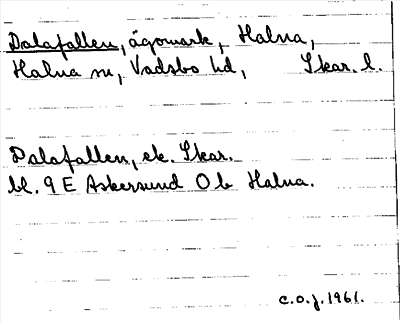 Dalafallen, ägomark, Halna,
Halna sn, Vadsbo hd, Skar. l.
Dalafallen, ek. Skar.
bl. 9 E Askersund O b Halna.
c.o.j. 1961.